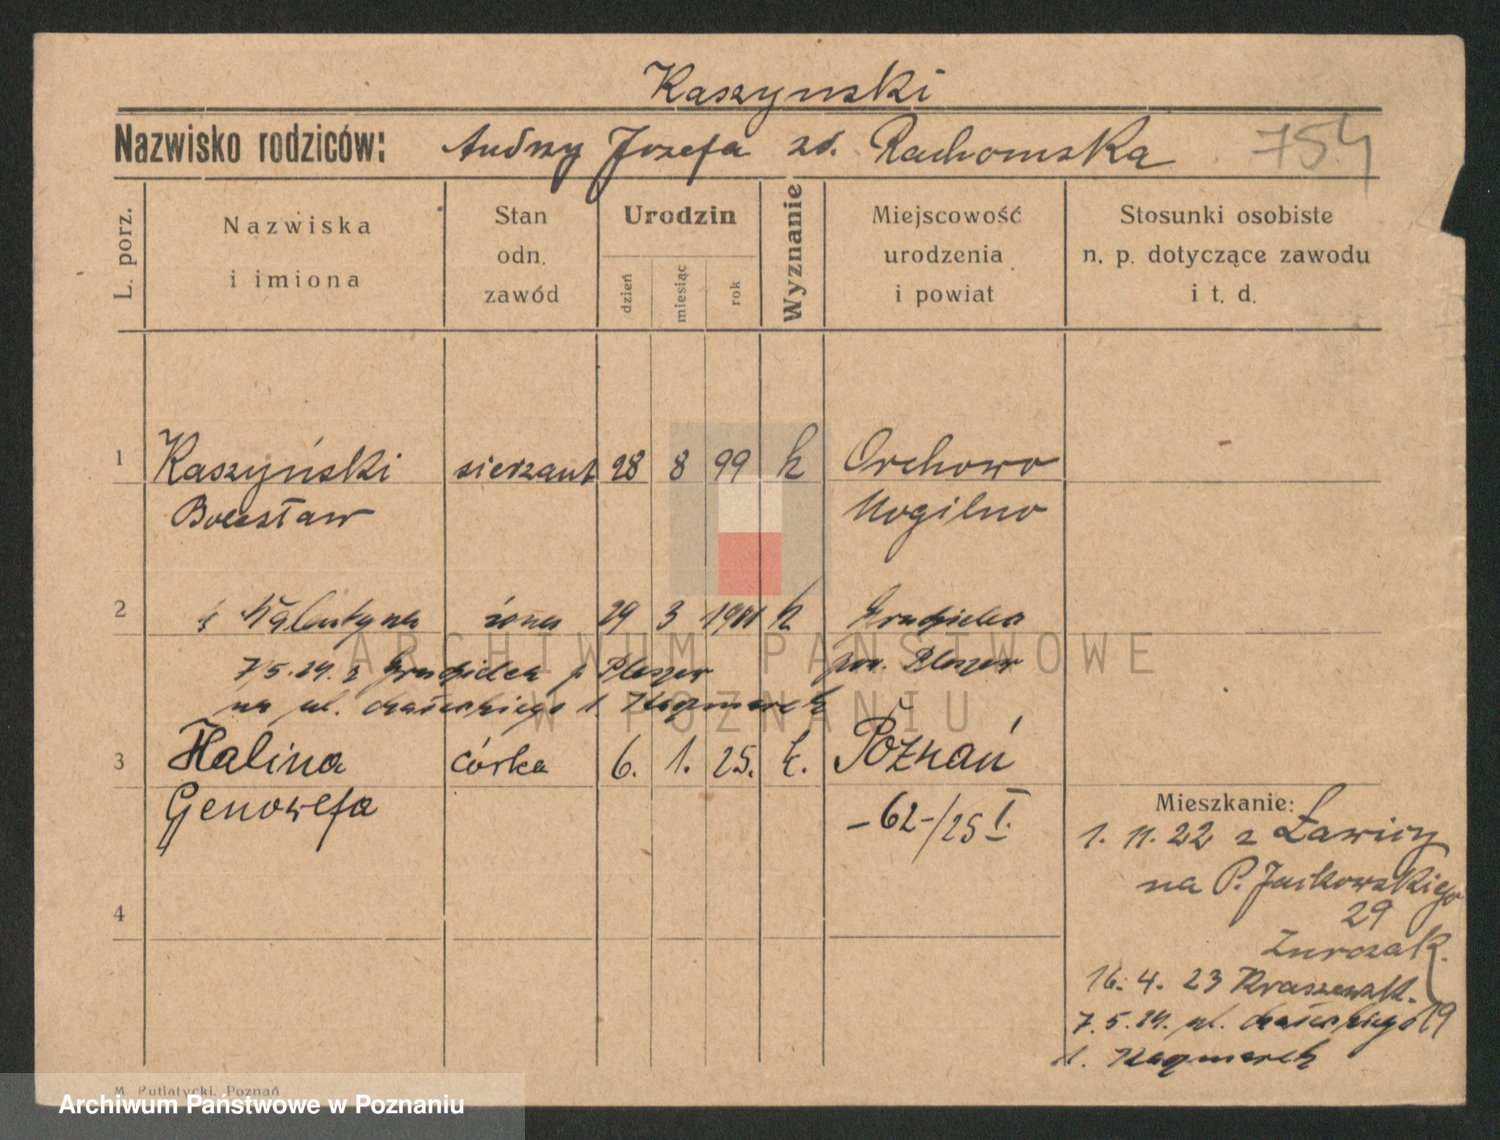 Kaszynski
Nazwisko rodziców: Andrzej Jozefa zd. Rachomska 754
L. porz.
Nazwiska
i imiona
Stan
odn.
zawód
Urodzin
dzień
miesiąc
rok
Wyznanie
Miejscowość
urodzenia
i powiat
Stosunki osobiste
n. p. dotyczące zawodu
i t. d.
1 Kaszyński sierzant 28 8 99 k Orchowo
Bolesław Mogilno
2 żona 29 3 k
7.5.24. z p Pleszew pow. Pleszew
na ul.
3 Halina córka 6. 1. 25. k. Poznań
Genowefa -62-/25 I.
4
Mieszkanie:
1. 11. 22 z Ławicy
na P. Jackowskiego
29
16. 4. 23 Kraszewsk.
7. 5. 24. ul. 19
ARCHIWUM PAŃSTWOWE
W POZNANIU
M. Putiatycki, Poznań
Archiwum Państwowe w Poznaniu